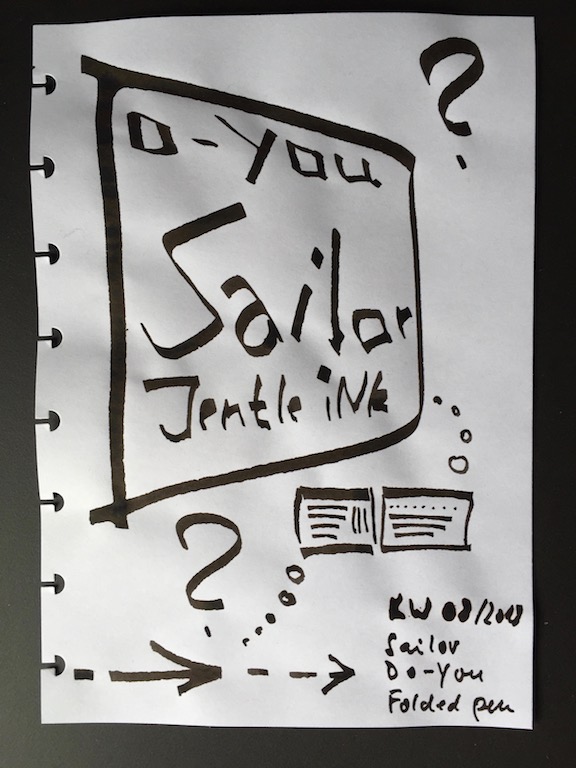 ?
Do-You
Sailor
Jentle iNk
?
KW 08/2018
Sailor
Do-You
Folded pen